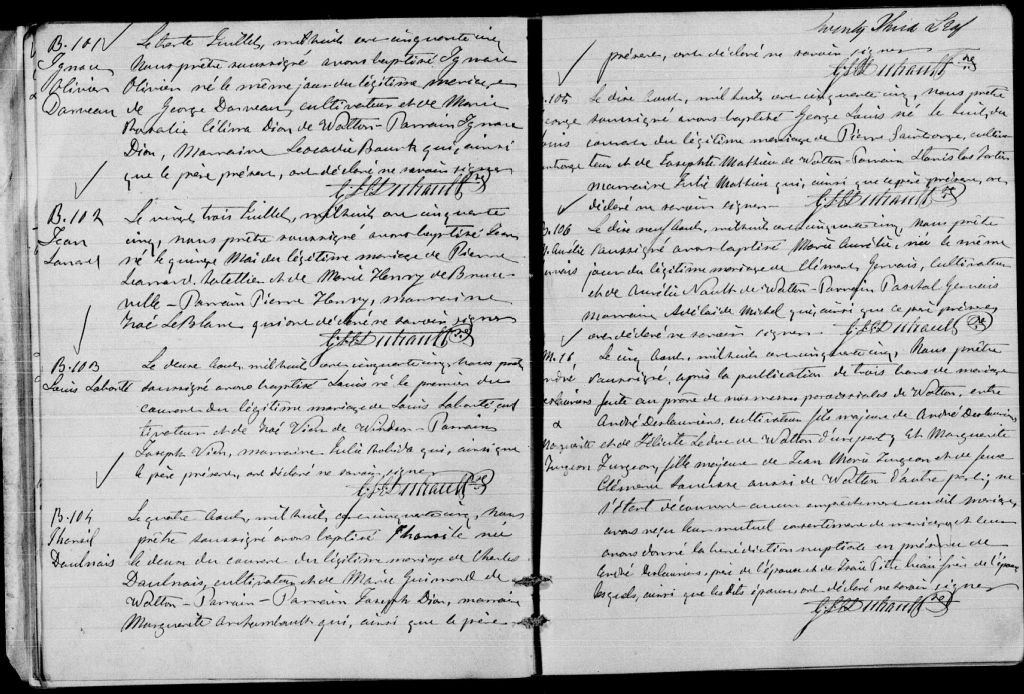 B.101
Ignace
Olivier
Darneau
Le trente Juillet, mil huit cent cinquante cinq
Nous prêtre soussigné avons baptisé Ignace
Olivier né le même jour du légitime mariage
de George Darneau, cultivateur et de Marie
Rosalie Célima Dion de Wotton - Parrain Ignace
Dion, Marraine Leocadie Bourk qui, ainsi
que le père présent, ont déclaré ne savoir signer
B.102
Jean
Le vingt trois Juillet, mil huit cent cinquante
cinq, nous prêtre soussigné avons baptisé Jean
né le quinze Mai du légitime mariage de Pierre
Leonard, hotellier et de Marie Henry de
ville - Parrain Pierre Henry, marraine
Zoé LeBlanc qui ont déclaré ne savoir signer
B.103
Louis Laborté
Le deux Aout, mil huit cent cinquante cinq, Nous prêtre
soussigné avons baptisé Louis né le premier du
courant du légitime mariage de Louis Laborté cul
tivateur et de Zoé Vien de Windsor - Parrain
Joseph Vien, marraine Julie Robida qui, ainsi que
le père présent, ont déclaré ne savoir signer
B.104
Daulnais
Le quatre Aout, mil huit cent cinquante cinq, Nous
prêtre soussigné avons baptisé née
le deux du courant du légitime mariage de Charles
Daulnais, cultivateur et de Marie Guimond de
Wotton - Parrain - Parrain Joseph Dion, marraine
Marguerite Archambault qui, ainsi que le père
Twenty Third
présent, ont déclaré ne savoir signer
.105
Le dix Aout, mil huit cent cinquante cinq, Nous prêtre
soussigné avons baptisé George Louis né le huit du
courant du légitime mariage de Pierre cultiva
teur et de Josephte Mathieu de Wotton - Parrain Stanislas Fortin
marraine Julie Mathieu qui, ainsi que le père présent, ont
déclaré ne savoir signer
B.106
M. Aurélie
Le dix neuf Aout, mil huit cent cinquante cinq Nous prêtre
soussigné avons baptisé Marie Aurélie, née le même
jour du légitime mariage de Clément Gervais, cultivateur
et de Aurélie Nault de Wotton - Parrain Paschal Gervais
marraine Adélaïde Michel qui, ainsi que le père présent
ont déclaré ne savoir signer
M.16
Le cinq Aout, mil huit cent cinquante cinq, Nous prêtre
soussigné, après la publication de trois bans de mariage
faite au prône de nos messes paroissiales de Wotton, entre
André Deslauriers, cultivateur fils majeur de André Deslauriers
et de Félicité Leduc de Wotton d'une part, Et Marguerite
Turgeon, fille majeure de Jean Marie Turgeon et de feue
Clémence aussi de Wotton d'autre part, ne
s'étant découvert aucun empêchement au dit mariage,
avons reçu leur mutuel consentement de mariage et leur
avons donné la bénédiction nuptiale en présence de
André Deslauriers, père de l'époux et de beau frère de l'épouse
lesquels, ainsi que les dits époux ont déclaré ne savoir signer